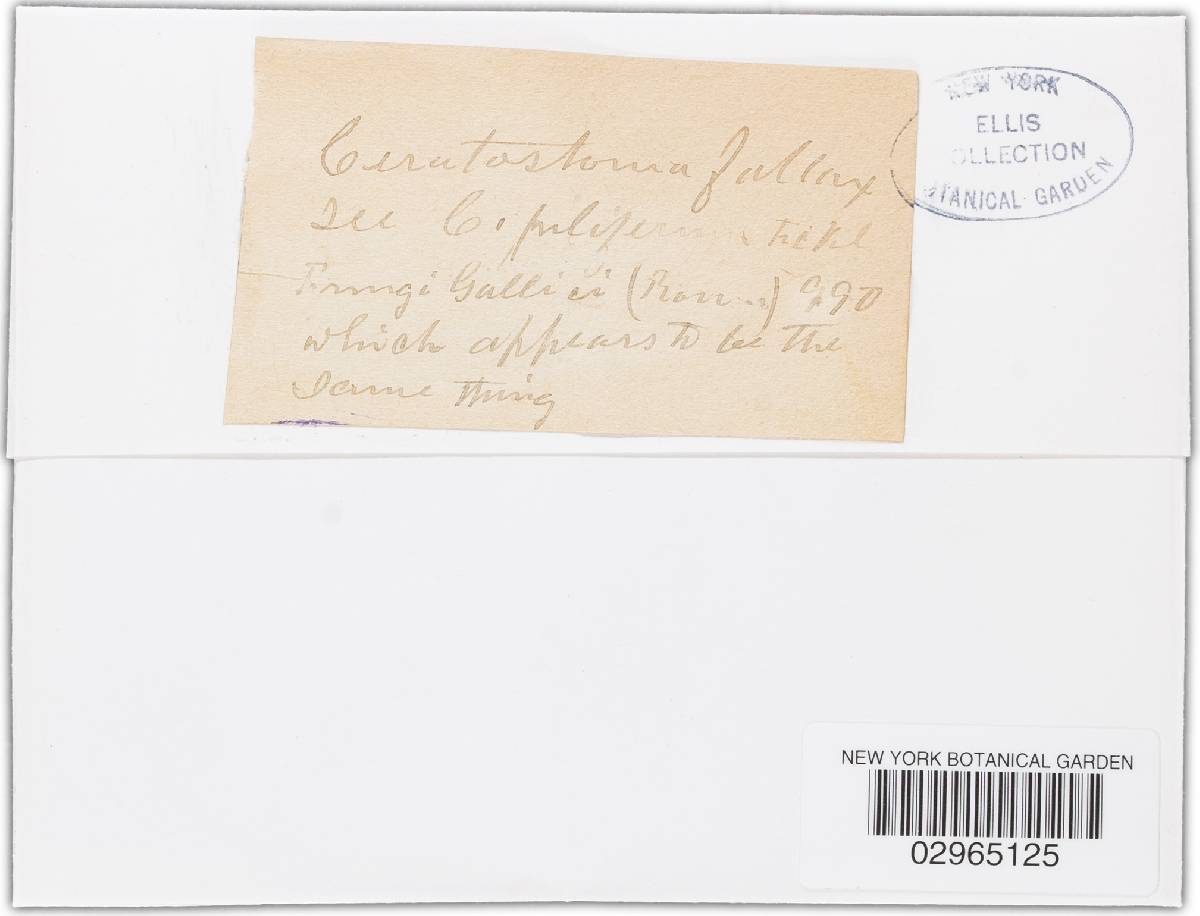 Ceratostoma fallax
see C. piliferum Fckl
Fungi Gallici (Roum) 990
which appears to be the
same thing
NEW YORK
ELLIS
COLLECTION
BOTANICAL GARDEN
NEW YORK BOTANICAL GARDEN
02965125